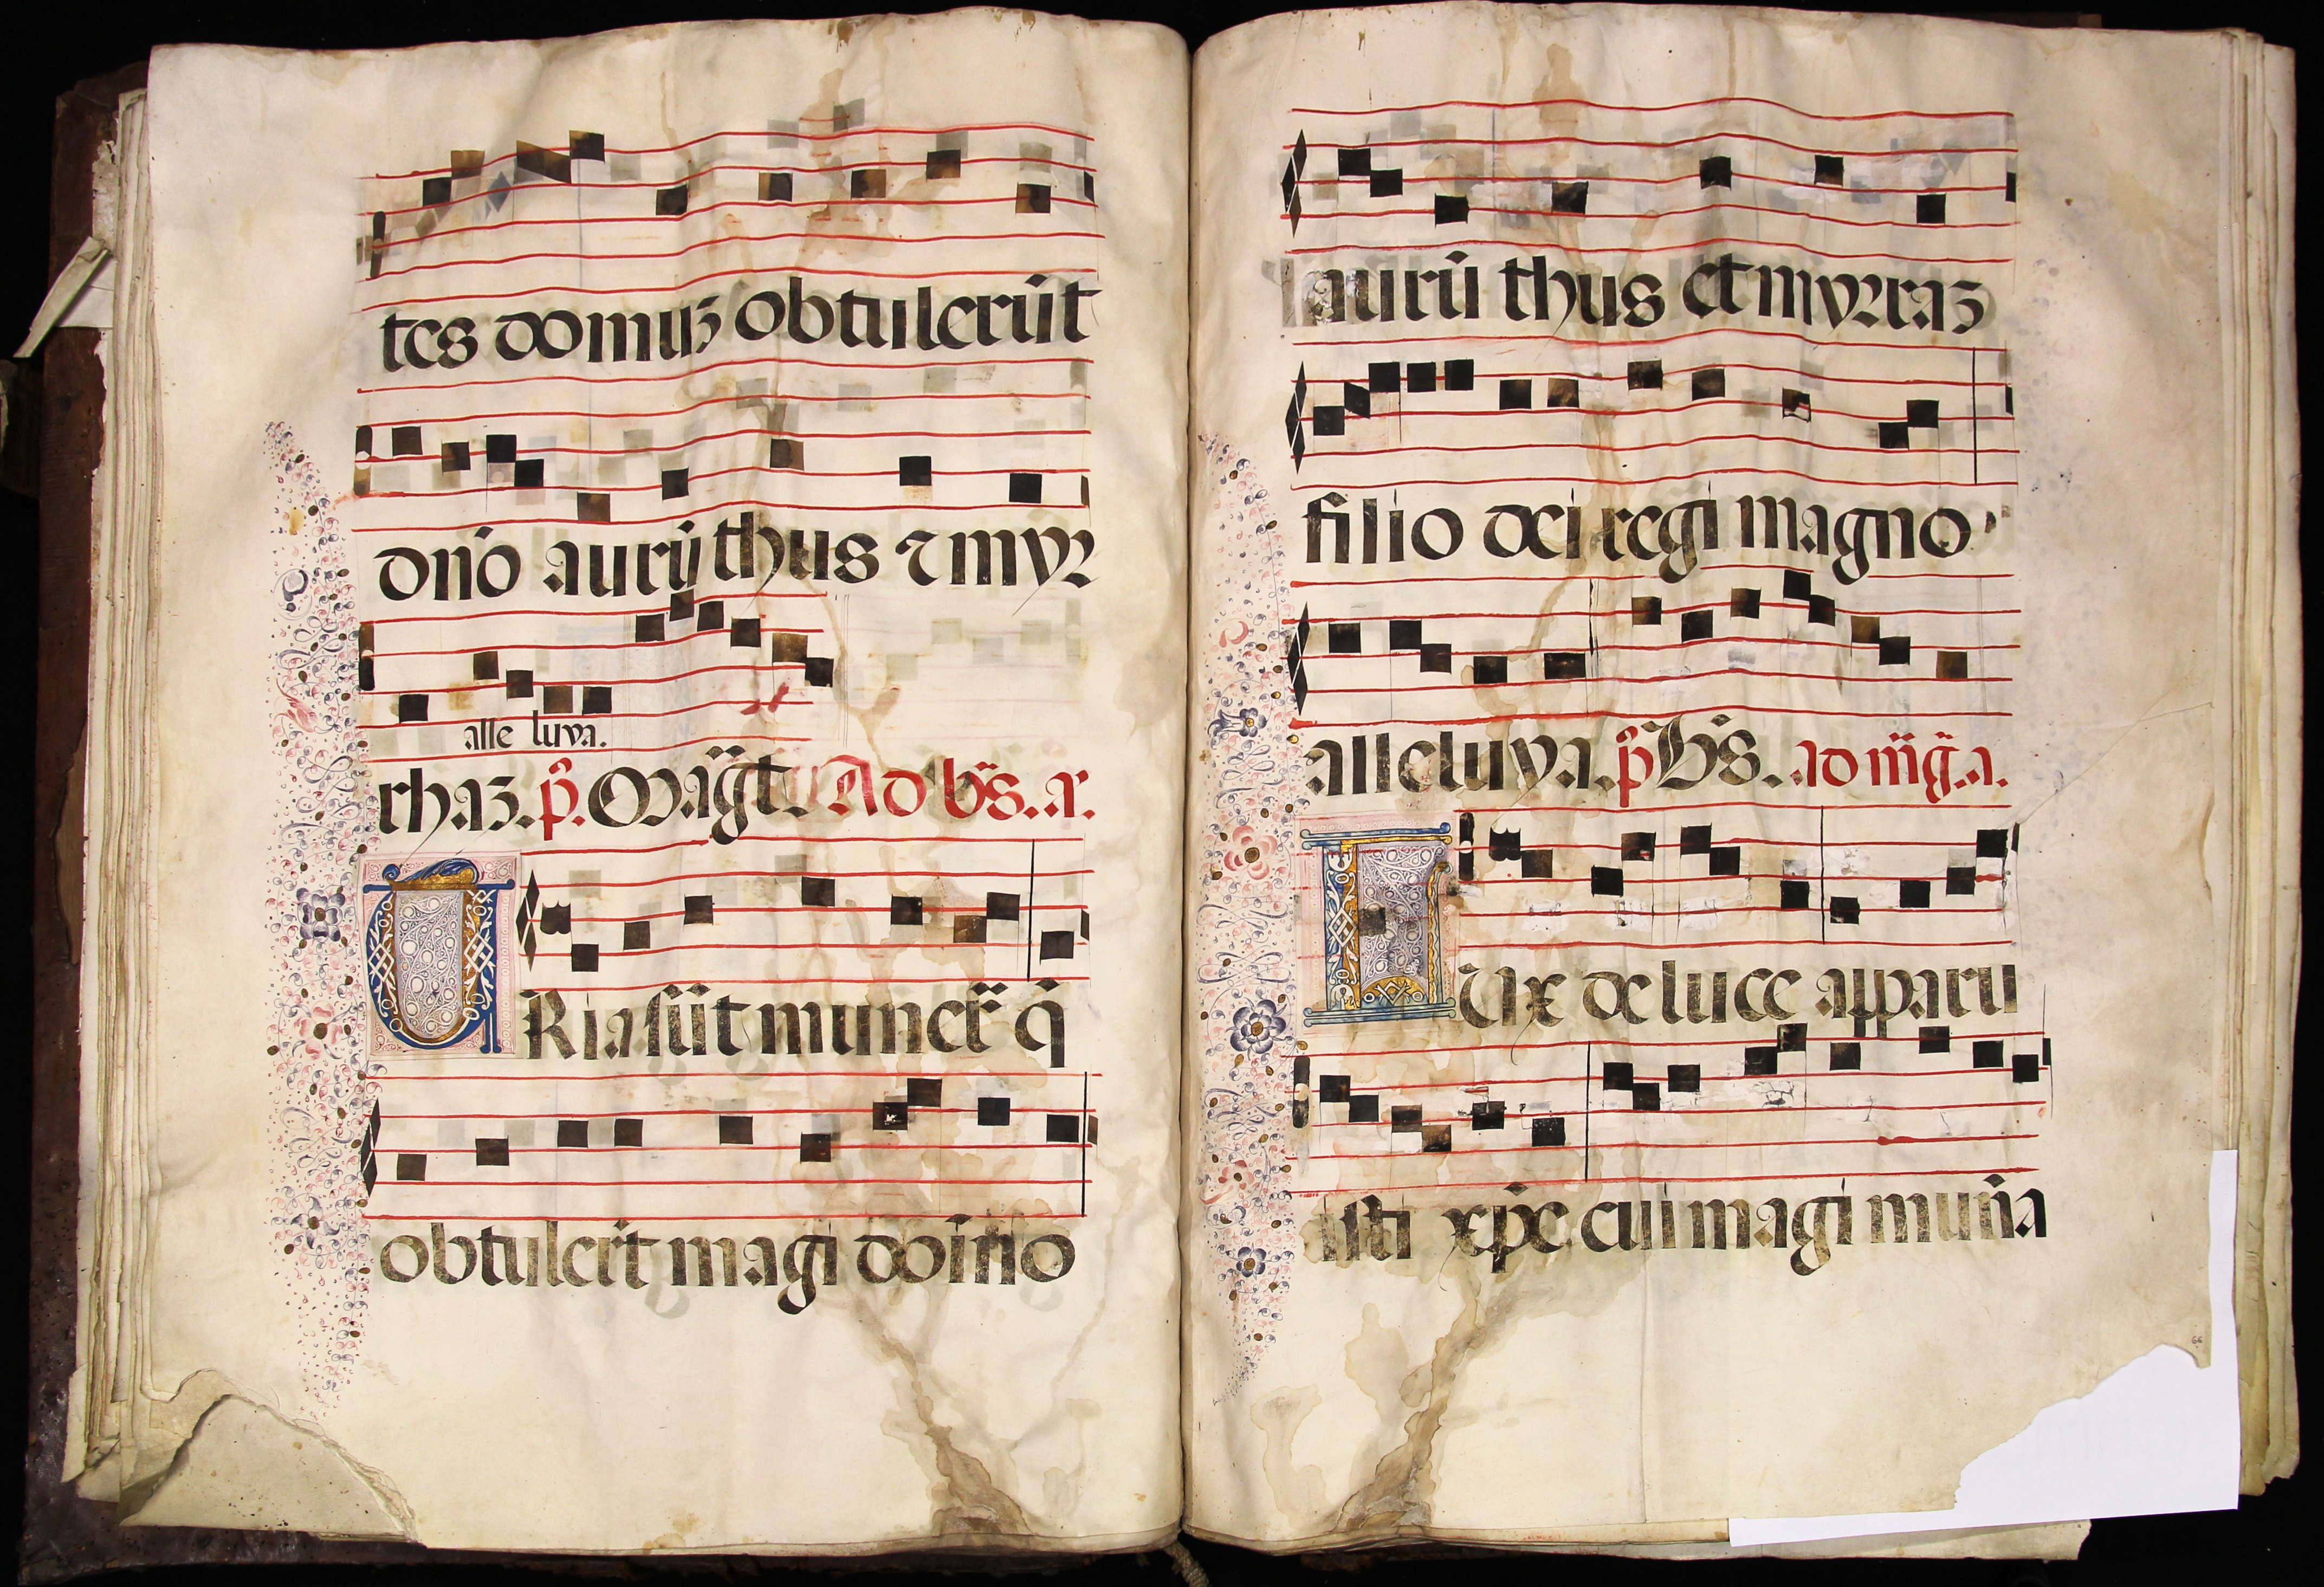 tes domuꝫ obtulerūt
dn̄o aurū thus ⁊ myr
alle luya.
rhaꝫ. p̄. Magt̄. Ad b̄s. a.
TRia sūt muner̄ q̄
obtuler̄t magi domino
aurū thus et myrraꝫ
filio dei regi magno
alleluya. p̄s. B̄s. ad m̄ḡ. a.
LUx de luce apparu
isti xp̄e cui magi mun̄a
66